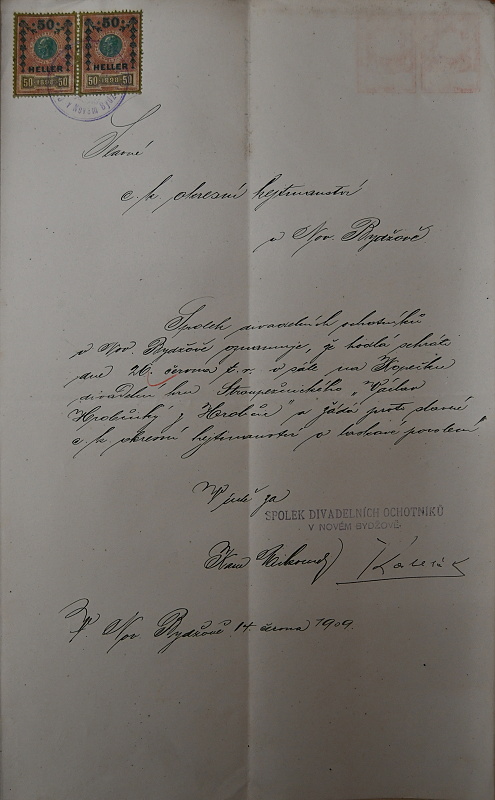 50 50
HELLER HELLER
50 1898 50 50 1898 50
Slavné
c. k. okresní hejtmanství
v Nov. Bydžově
Spolek divadelních ochotníků
v Nov. Bydžově oznamuje, že hodlá sehráti
dne 20. června t. r. v sále na Kopečku
divadelní hru Stroupežnického „Václav
Hrobčický z Hrobčic" a žádá proto slavné
c. k. okresní hejtmanství o laskavé povolení
V úctě za
SPOLEK DIVADELNÍCH OCHOTNÍKŮ
V NOVÉM BYDŽOVĚ.
V Nov. Bydžově 14. června 1909.